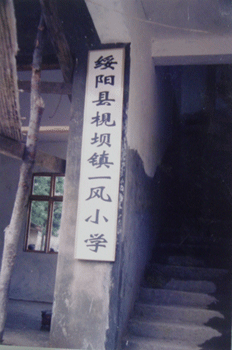 绥阳县枧坝镇一风小学